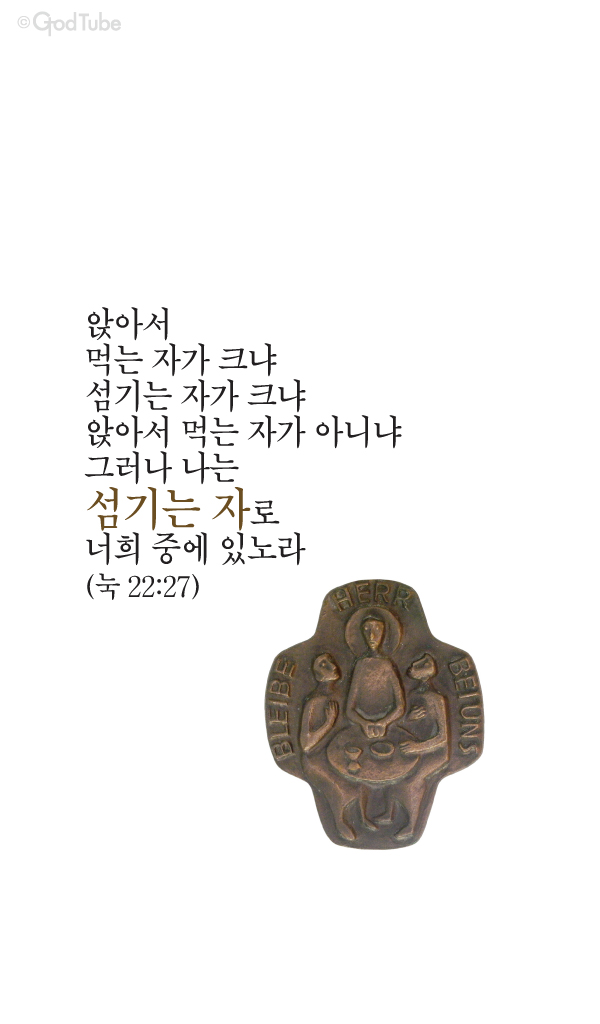 © GodTube
앉아서
먹는 자가 크냐
섬기는 자가 크냐
앉아서 먹는 자가 아니냐
그러나 나는
섬기는 자로
너희 중에 있노라
(눅 22:27)
HERR
BLEIBE
BEI UNS